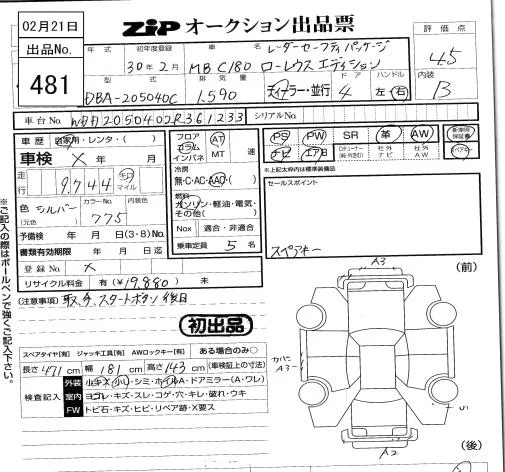 02月21日
出品No.
481
ZiP オークション出品票
年式 初年度登録 車名 評価点
30年2月 MB C180 レーダーセーフティパッケージ
ローレウスエディション
4.5
型式 排気量 ドア ハンドル 内装
DBA-205040C 1,590 ディーラー・並行 4 左・右 B
車台No. WDD2050402R361233 シリアルNo.
車歴 自家用・レンタ・( )
車検 × 年 月
走行 9,744 キロ マイル
色 シルバー カラーNo. 775 内装色
(元色)
予備検 年 月 日(3・8)No.
書類有効期限 年 月 日迄
登録No. ×
リサイクル料金 有(¥19,880) 未
フロア コラム インパネ AT MT 速
冷房
無・C・AC・AAC
燃料
ガソリン・軽油・電気・その他( )
Nox 適合・非適合
乗車定員 5 名
PS PW SR 革 AW 新車時保証書
ナビ エアB Dチューナー(純・外含む) 社外ナビ 社外AW スペアキー
※上記太枠内は標準装備品
セールスポイント
スペアキー
(注意事項) 取、予、スタートボタン後日
初出品
スペアタイヤ[有] ジャッキ工具[有] AWロックキー[有] ある場合のみ〇
長さ 471 cm 幅 181 cm 高さ 143 cm (車検証上の寸法)
検査記入
外装 小キズ・小凹・シミ・ホイルA・ドアミラー(A・ワレ)
室内 ヨゴレ・キズ・スレ・コゲ・穴・キレ・破れ・ウキ
FW トビ石・キズ・ヒビ・リペア跡・X要ス
※ご記入の際はボールペンで強くご記入下さい。
(前)
A3
カバー
A3
A2
(後)